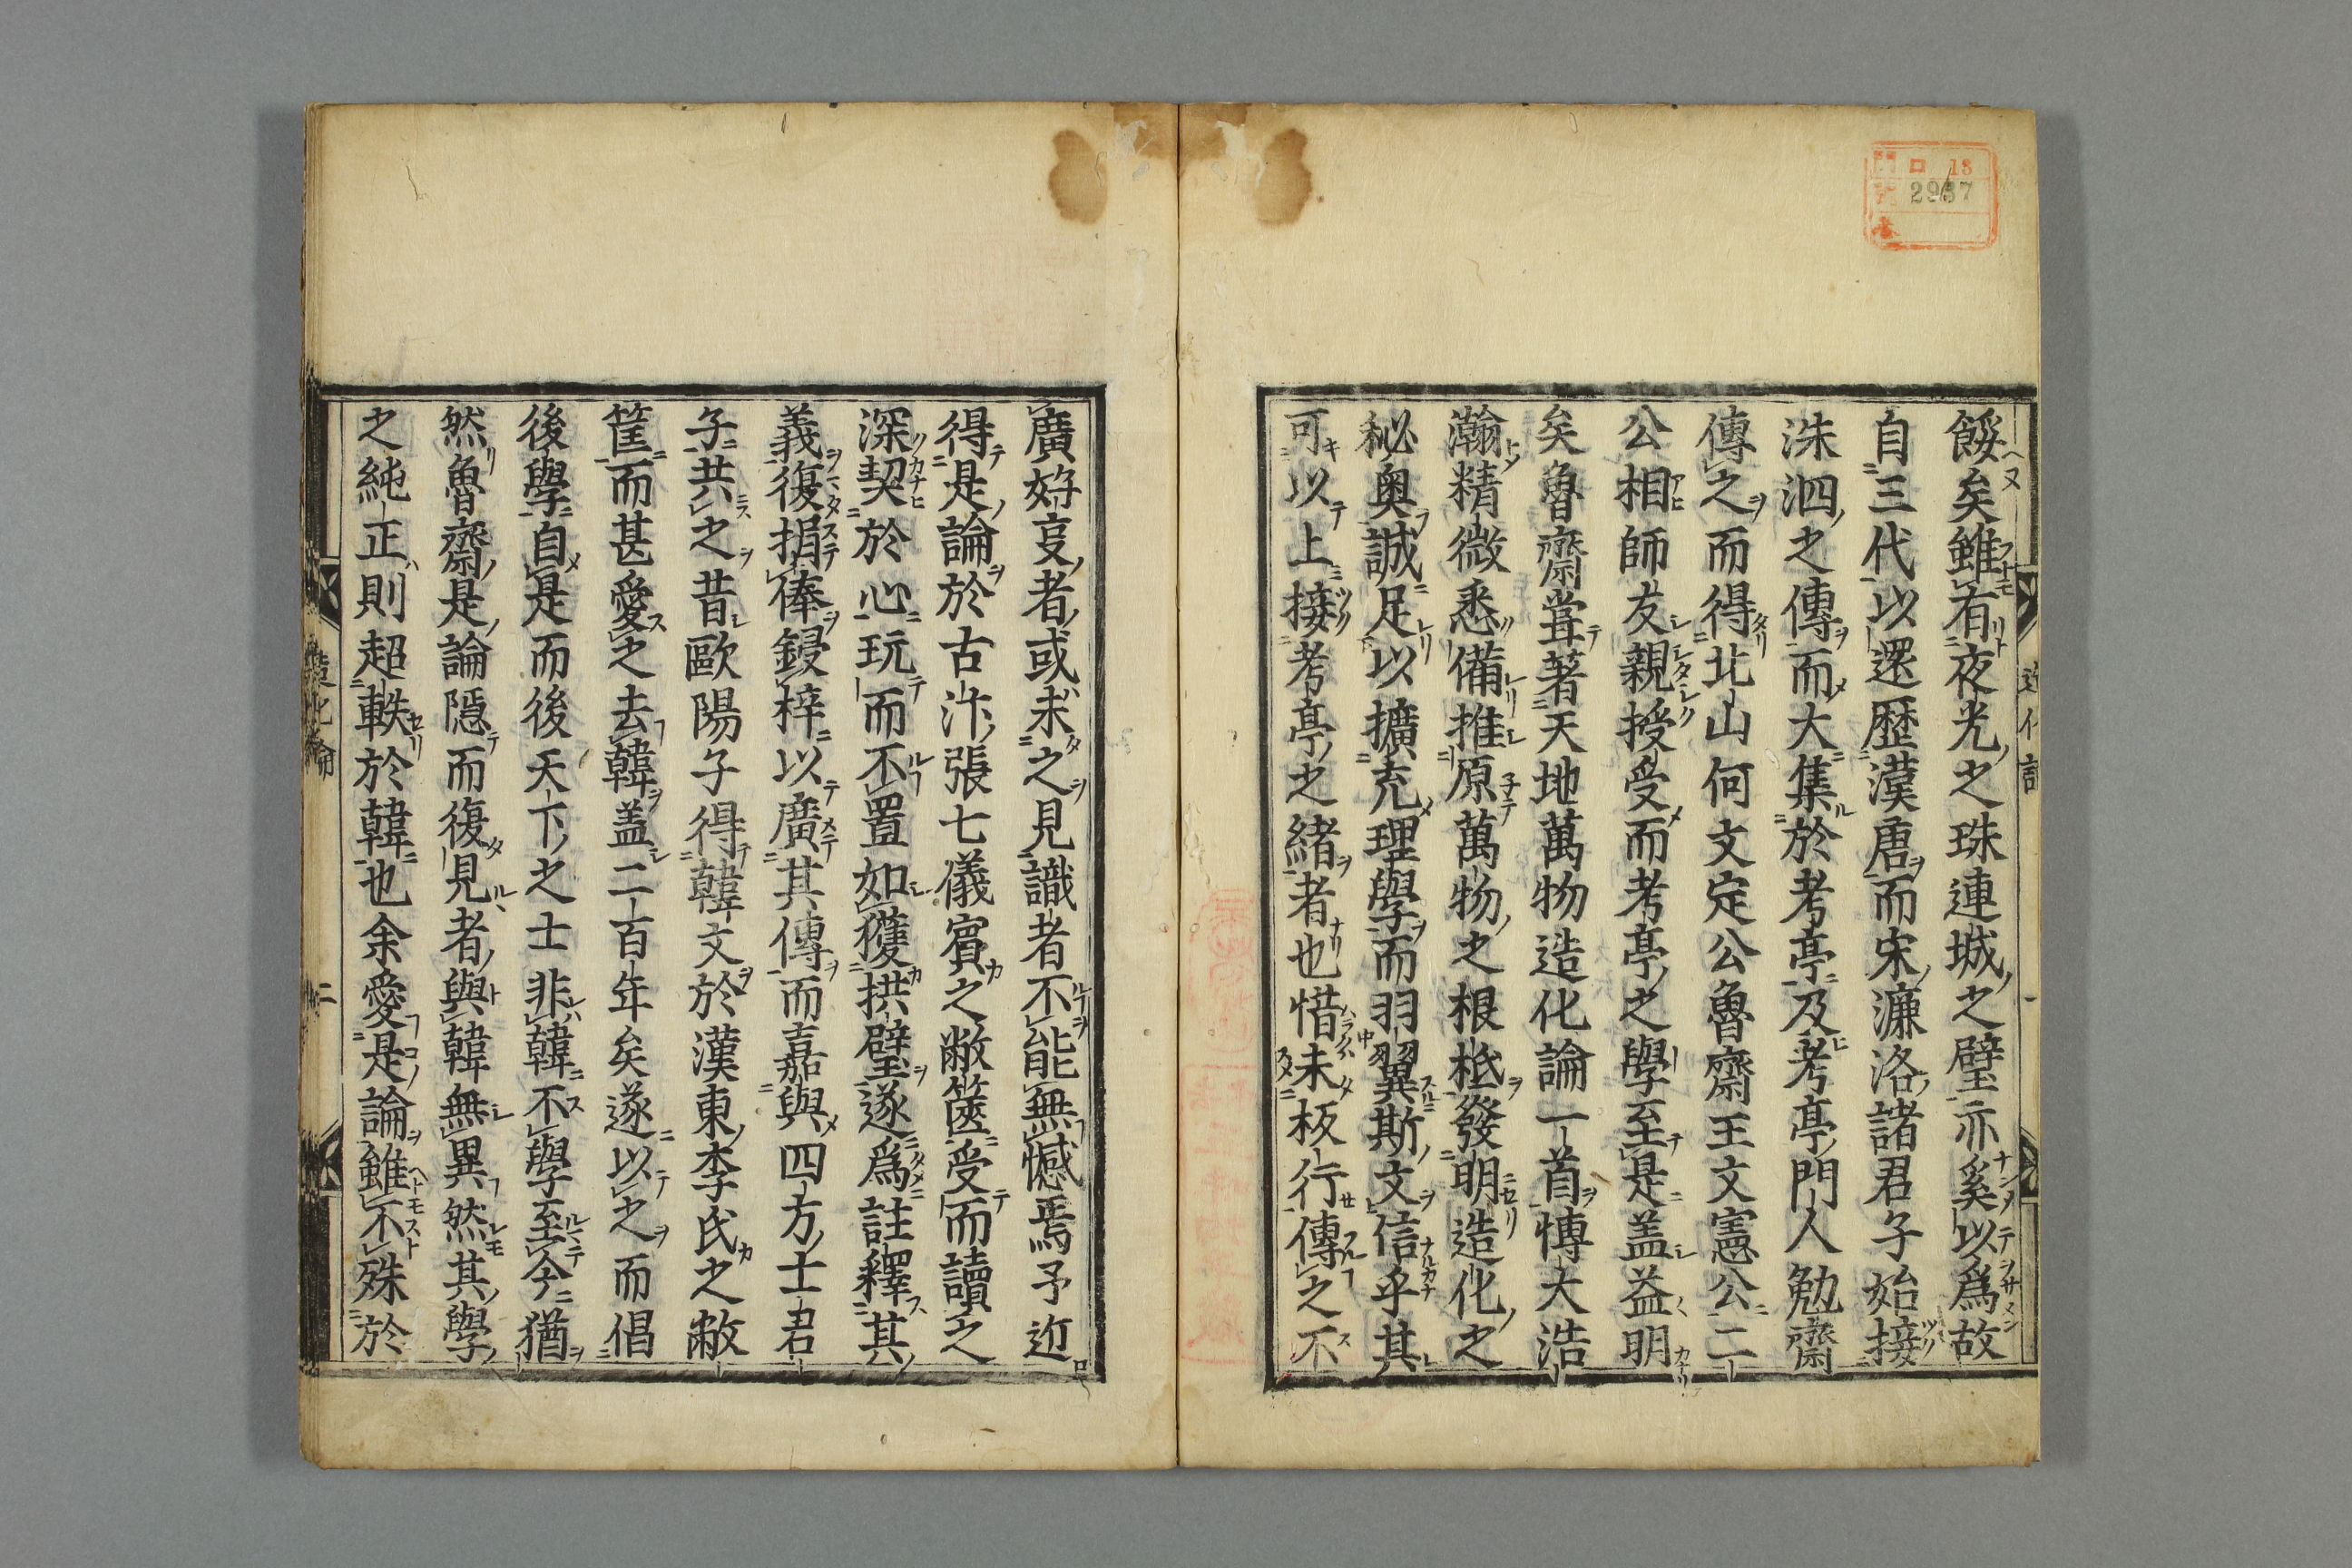 餒矣雖有夜光之珠連城之璧亦奚以爲故
自三代以還歷漢唐而宋濂洛諸君子始接
洙泗之傳而大集於考亭及考亭門人勉齋
傳之而得北山何文定公魯齋王文憲公二
公相師友親授受而考亭之學至是盖益明
矣魯齋甞著天地萬物造化論一首愽大浩
瀚精微悉備推原萬物之根柢發明造化之
秘奥誠足以擴充理學而羽翼斯文信乎其
可以上接考亭之緒者也惜未板行傳之不
廣好事者或求之見識者不能無憾焉予近
得是論於古汴張七儀賓之敝篋受而讀之
深契於心玩而不置如獲拱璧遂爲註釋其
義復捐俸鋟梓以廣其傳而嘉與四方士君
子共之昔歐陽子得韓文於漢東李氏之敝
筐而甚愛之去韓盖二百年矣遂以之而倡
後學自是而後天下之士非韓不學至今猶
然魯齋是論隠而復見者與韓無異然其學
之純正則超軼於韓也余愛是論雖不殊於
造化論
二
13
2937